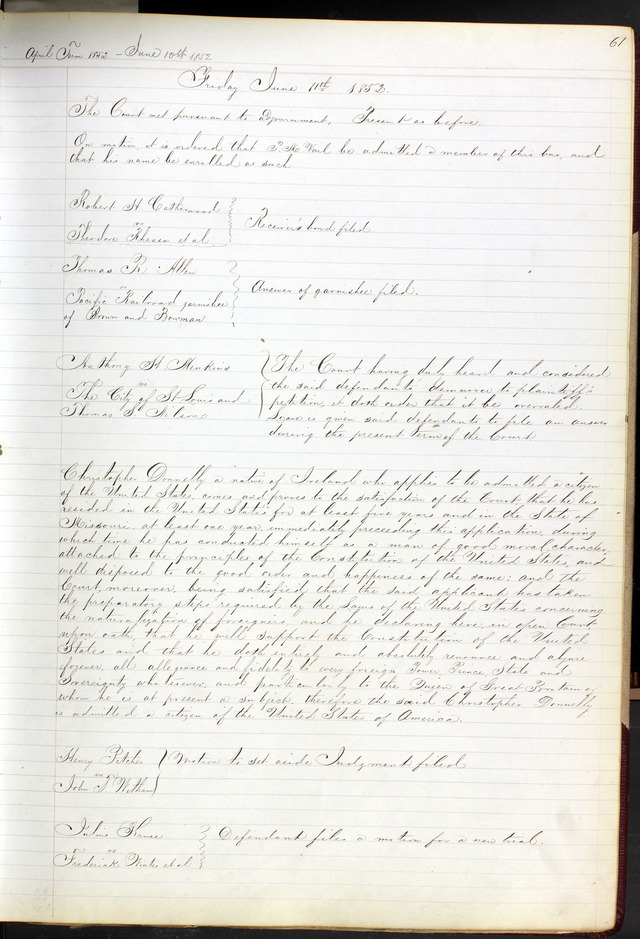 61
April Term 1852 – June 10th 1852
Friday June 11th 1852.
The Court met pursuant to adjournment. Present as before.
On motion, it is ordered that Vail be admitted a member of this bar, and
that his name be enrolled as such
Robert H Catherwood
vs
Theodore et al
Receiver's bond filed
Thomas R. Allen
vs
Pacific Railroad garnishee
of Brown and Bowman
Answer of garnishee filed.
Anthony H. Menkins
vs
The City of St Louis and
Thomas S. Nelson
The Court having duly heard and considered
the said defendants demurrer to plaintiffs
petition, it doth order that it be overruled.
Leave is given said defendants to file an answer
during the present term of the Court
Christopher Donnelly a native of Ireland who applies to be admitted a citizen
of the United States, comes and proves to the satisfaction of the Court that he has
resided in the United States for at least five years and in the State of
Missouri at least one year, immediately preceeding this application, during
which time he has conducted himself as a man of good moral character,
attached to the principles of the Constitution of the United States, and
well disposed to the good order and happiness of the same: and the
Court, moreover, being satisfied that the said applicant has taken
the preparatory steps required by the laws of the United States concerning
the naturalization of foreigners, and he declaring here, in open Court
upon oath, that he will support the Constitution of the United
States and that he doth entirely and absolutely renounce and abjure
forever, all allegiance and fidelity to every foreign Power, Prince State and
Sovereignty whatsoever, and particularly to the Queen of Great Britain of
whom he is at present a subject, therefore the said Christopher Donnelly
is admitted a citizen of the United States of America.
Henry Pitcher
vs
John T Witham
Motion to set aside Judgment filed
Julius Kruse
vs
Frederick et al
Defendant files a motion for a new trial.